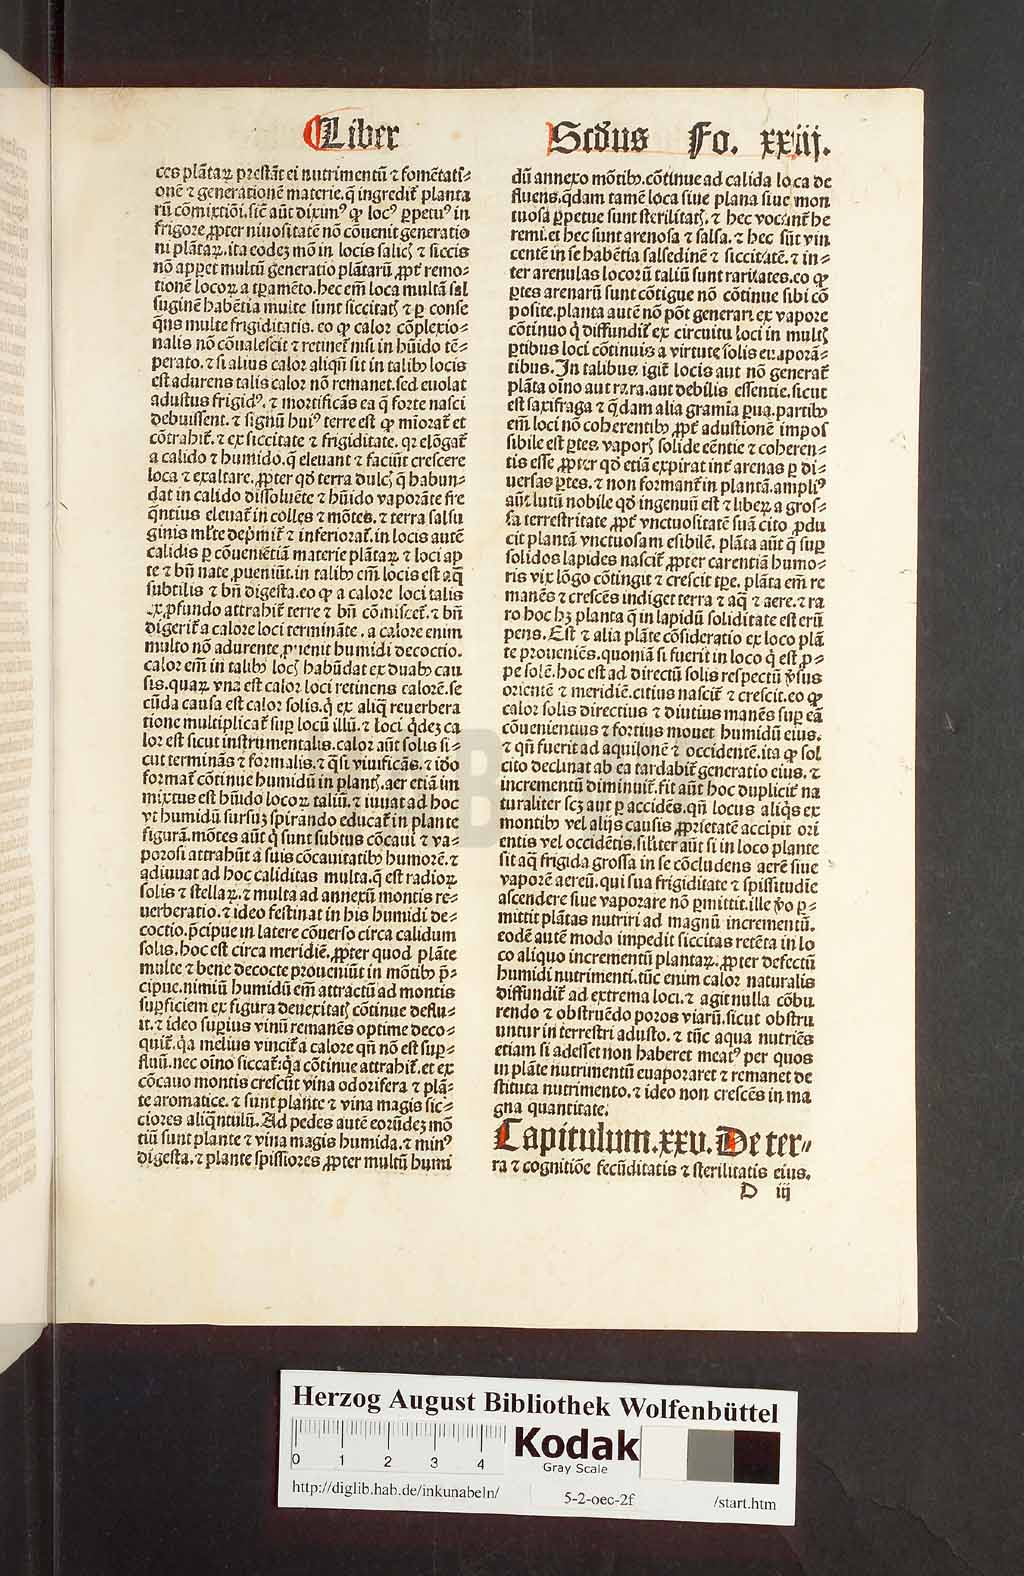 Liber Scd̄us Fo. xxiij.
ces plātaꝝ p̄stāt ei nutrimentū ⁊ fomētati⸗
onē ⁊ generationē materie, q̄ ingredit̄ planta
rū cōmixtiōi. sic̄ aūt diximꝰ ꝙ locꝰ ꝑpetuꝰ in
frigore ꝓpter niuositatē nō cōuenit generatio
ni plātaꝝ. ita eodeꝫ mō in locis salicꝭ ⁊ siccis
nō apꝑet multū generatio plātarū, ꝓpt̄ remo⸗
tionē locoꝝ a tꝑamēto. hec em̄ loca multā sal
suginē habētia multe sunt siccitatꝭ ⁊ ꝑ conse
q̄ns multe frigiditatis. eo ꝙ calor cōplexio⸗
nalis nō cōualescit ⁊ retinet̄ nisi in hūido tē⸗
perato. ⁊ si alius calor aliqn̄ sit in talibꝰ locis
est adurens talis calor nō remanet. sed euolat
adustus frigidꝰ. ⁊ mortificās ea q̄ forte nasci
debuissent. ⁊ signū huiꝰ terre est ꝙ miorat̄ et
cōtrahit̄. ⁊ ex siccitate ⁊ frigiditate. qꝛ elōgat̄
a calido ⁊ humido. q̄ eleuant ⁊ faciūt crescere
loca ⁊ exaltare. ꝓpter qd̄ terra dulcꝭ q̄ habun⸗
dat in calido dissoluēte ⁊ hūido vaporāte fre
q̄ntius eleuat̄ in colles ⁊ mōtes. ⁊ terra salsu
ginis ml̄te dep̄mit̄ ⁊ inferiorat̄. in locis autē
calidis ꝑ cōueniētiā materie plātaꝝ ⁊ loci ap
te ⁊ bn̄ nate ꝓueniūt. in talibꝰ em̄ locis est aq̄
subtilis ⁊ bn̄ digesta. eo ꝙ a calore loci talis
ex ꝓfundo attrahit̄ terre ⁊ bn̄ cōmiscet̄. ⁊ bn̄
digerit̄ a calore loci termināte. a calore enim
multo nō adurente ꝓuenit humidi decoctio.
calor em̄ in talibꝰ locꝭ habūdat ex duabꝰ cau
sis. quaꝝ vna est calor loci retinens calorē. se
cūda causa est calor solis. q̄ ex aliq̄ reuerbera
tione multiplicat̄ suꝑ locū illū. ⁊ loci q̄dez ca
lor est sicut instrumentalis. calor aūt solis si⸗
cut terminās ⁊ formalis. ⁊ q̄si viuificās. ⁊ iō
format̄ cōtinue humidū in plantꝭ. aer etiā im
mixtus est hūido locoꝝ taliū. ⁊ iuuat ad hoc
vt humidū sursuꝫ spirando educat̄ in plante
figurā. mōtes aūt q̄ sunt subtus cōcaui ⁊ va⸗
porosi attrahūt a suis cōcauitatibꝰ humorē. ⁊
adiuuat ad hoc caliditas multa. q̄ est radioꝝ
solis ⁊ stellaꝝ. ⁊ multa ad annexū montis re⸗
uerberatio. ⁊ ideo festinat in his humidi de⸗
coctio. p̄cipue in latere cōuerso circa calidum
solis. hoc est circa meridiē. ꝓpter quod plāte
multe ⁊ bene decocte proueniūt in mōtibꝰ p̄⸗
cipue. nimiū humidū em̄ attractū ad montis
suꝑficiem ex figura deuexitatꝭ cōtinue deflu⸗
it. ⁊ ideo suꝑius vinū remanēs optime deco⸗
quit̄. q̄a melius vincit̄ a calore qn̄ nō est suꝑ⸗
fluū. nec oīno siccat̄: q̄a cōtinue attrahit̄. et ex
cōcauo montis crescūt vina odorifera ⁊ plā⸗
te aromatice. ⁊ sunt plante ⁊ vina magis sic⸗
ciores aliq̄ntulū. Ad pedes autē eorūdeꝫ mō
tiū sunt plante ⁊ vina magis humida. ⁊ minꝰ
digesta. ⁊ plante spissiores ꝓpter multū humi
dū annexo mōtibꝰ. cōtinue ad calida loca de
fluens. q̄dam tamē loca siue plana siue mon
tuosa ꝑpetue sunt sterilitatꝭ. ⁊ hec vocant̄ he
remi. et hec sunt arenosa ⁊ salsa. ⁊ hec sūt vin
centē in se habētia salsedinē ⁊ siccitatē. ⁊ in⸗
ter arenulas locorū taliū sunt raritates. eo ꝙ
ꝑtes arenarū sunt cōtigue nō cōtinue sibi cō
posite. planta autē nō pōt generari ex vapore
cōtinuo q̄ diffundit̄ ex circuitu loci in multꝭ
ꝑtibus loci cōtinuis a virtute solis euaporā⸗
tibus. In talibus igit̄ locis aut nō generat̄
plāta oīno aut rara. aut debilis essentie. sicut
est saxifraga ⁊ q̄dam alia gramīa ꝑua. partibꝰ
em̄ loci nō coherentibꝰ ꝓpt̄ adustionē impos
sibile est ꝑtes vaporꝭ solide eēntie ⁊ coheren⸗
tis esse ꝓpter qd̄ etiā expirat int̄ arenas ꝑ di⸗
uersas ꝑtes. ⁊ non formant̄ in plantā. ampliꝰ
aūt lutū nobile qd̄ ingenuū est ⁊ libeꝝ a gros⸗
sa terrestritate ꝓpt̄ vnctuositatē suā cito ꝓdu
cit plantā vnctuosam esibilē. plāta aūt q̄ suꝑ
solidos lapides nascit̄ ꝓpter carentiā humo⸗
ris vix lōgo cōtingit ⁊ crescit tꝑe. plāta em̄ re
manēs ⁊ crescēs indiget terra ⁊ aq̄ ⁊ aere. ⁊ ra
ro hoc hꝫ planta q̄ in lapidū soliditate est erū
pens. Est ⁊ alia plāte cōsideratio ex loco plā
te proueniēs. quoniā si fuerit in loco q̄ est ꝓ⸗
pe solē. hoc est ad directū solis respectū v̄sus
orientē ⁊ meridiē. citius nascit̄ ⁊ crescit. eo ꝙ
calor solis directius ⁊ diutius manēs suꝑ eā
cōuenientius ⁊ fortius mouet humidū eius.
⁊ qn̄ fuerit ad aquilonē ⁊ occidentē. ita ꝙ sol
cito declinat ab ea tardabit̄ generatio eius. ⁊
incrementū diminuit̄. fit aūt hoc duplicit̄ na
turaliter scꝫ aut ꝑ accidēs. qn̄ locus aliq̄s ex
montibꝰ vel alijs causis ꝓprietatē accipit ori
entis vel occidētis. sil̄iter aūt si in loco plante
sit aq̄ frigida grossa in se cōcludens aerē siue
vaporē aereū. qui sua frigiditate ⁊ spissitudīe
ascendere siue vaporare nō ꝑmittit. ille v̄o ꝑ⸗
mittit plātas nutriri ad magnū incrementū.
eodē autē modo impedit siccitas retēta in lo
co aliquo incrementū plantaꝝ. ꝓpter defectū
humidi nutrimenti. tūc enim calor naturalis
diffundit̄ ad extrema loci. ⁊ agit nulla cōbu
rendo ⁊ obstruēdo poros viarū. sicut obstru
untur in terrestri adusto. ⁊ tūc aqua nutriēs
etiam si adesset non haberet meatꝰ per quos
in plāte nutrimentū euaporaret ⁊ remanet de
stituta nutrimento. ⁊ ideo non crescēs in ma
gna quantitate.
Capitulum. xxv. De ter⸗
ra ⁊ cognitiōe fecūditatis ⁊ sterilitatis eius.
D iij
Herzog August Bibliothek Wolfenbüttel
0 1 2 3 4
Kodak
Gray Scale
http://diglib.hab.de/inkunabeln/ 5-2-oec-2f /start.htm